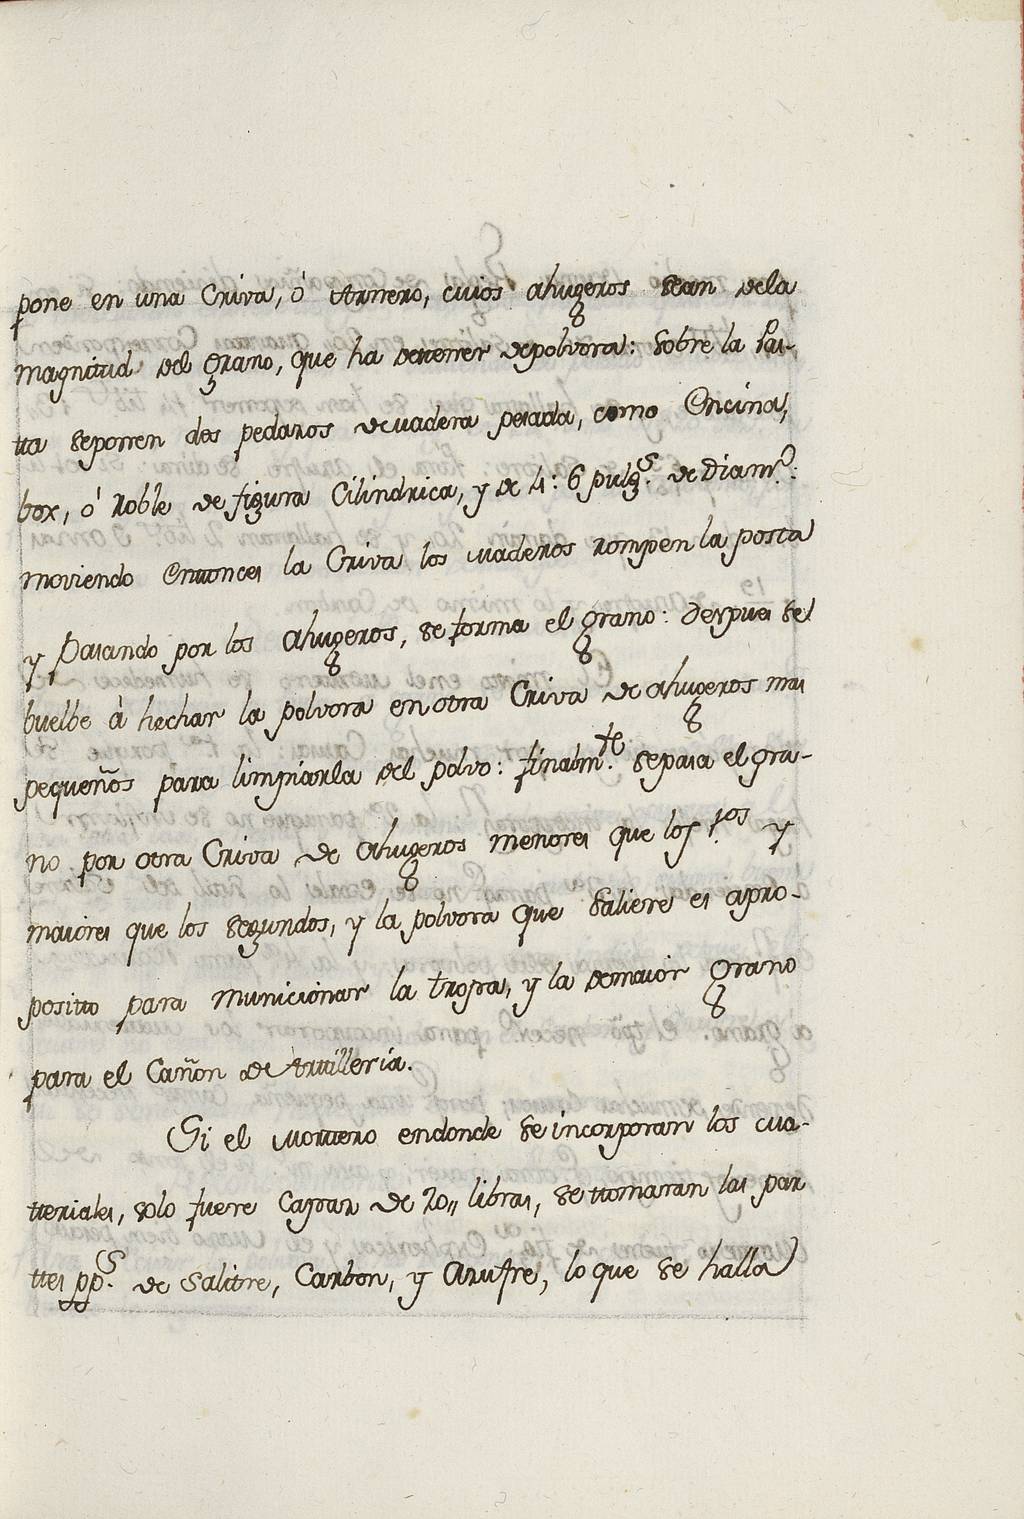 pone en una Criva, ó Arnero, cuios ahugeros sean dela
magnitud del grano, que ha detener depolvora: sobre la Pas-
ta seponen dos pedazos demadera pesada, como Encina,
box, ó roble de figura Cilindrica, y de 4: 6 pulg.s de Diam.o:
moviendo entonces la Criva los maderos rompen la posta
y Pasando por los ahugeros, se forma el grano: despues se
buelbe à hechar la polvora en otra Criva de ahugeros mas
pequeños para limpiarla del polvo: finalm.te sepasa el gra-
no por otra Criva de ahugeros menores que los 1.os y
maiores que los segundos, y la polvora que saliere es apro-
posito para municionar la tropa, y la demaior grano
para el Cañon de Artilleria.
Si el Mortero endonde se incorporan los ma-
teriales, solo fuere Capaz de 20,, libras, se tomaran las par
tes pp.s de Salitre, Carbon, y Azufre, lo que se halla